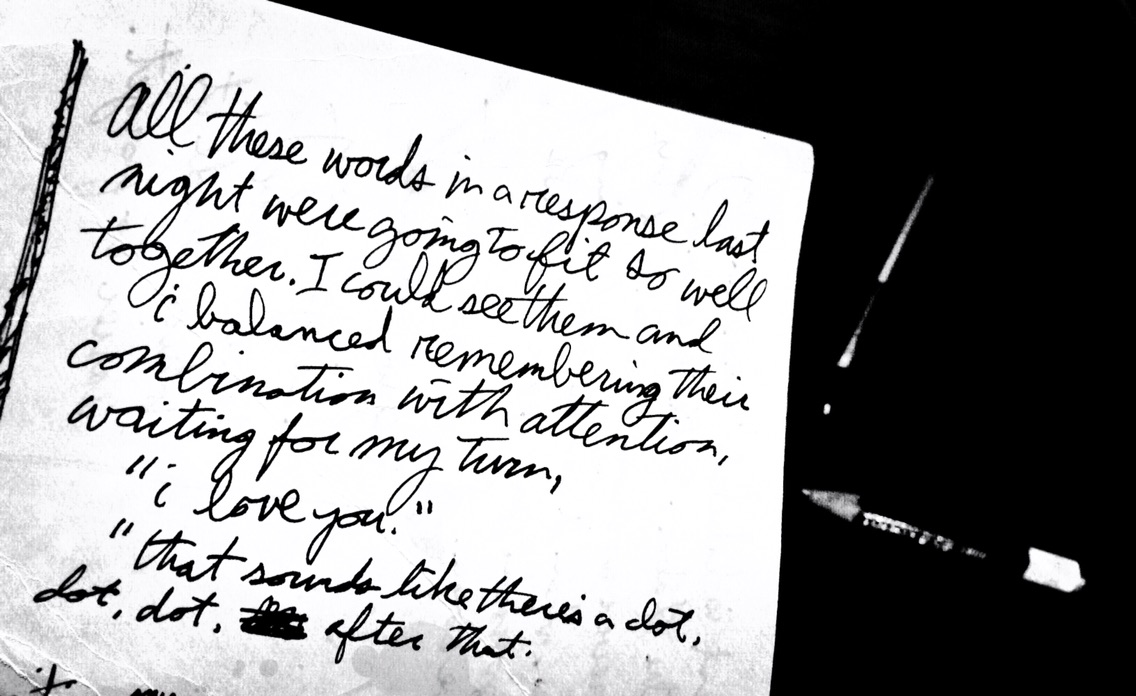 All these words in a response last
night were going to fit so well
together. I could see them and
i balanced remembering their
combination with attention,
waiting for my turn,
"i love you."
"that sounds like there's a dot,
dot, dot, after that.